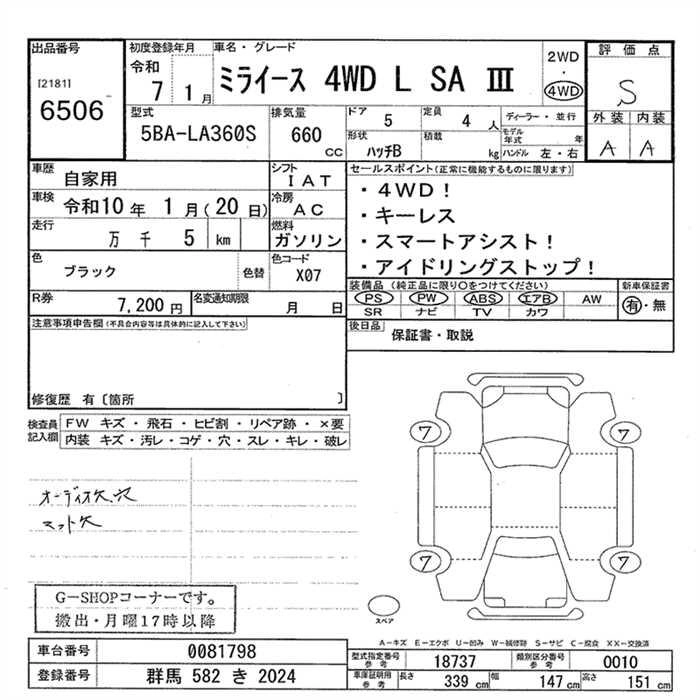 出品番号
[2181]
6506
初度登録年月
令和
7 1月
車名・グレード
ミライース 4WD L SA Ⅲ
2WD
・
4WD
評価点
S
外装 内装
A A
型式
5BA-LA360S
排気量
660
CC
ドア
5
定員
4 人
形状
ハッチB
積載
kg
ディーラー・並行
モデル年式 年
ハンドル 左・右
車歴
自家用
シフト
IAT
車検
令和10年 1月(20日)
冷房
AC
走行
万 千 5 km
燃料
ガソリン
色
ブラック
色替
色コード
X07
R券
7,200円
名変通知期限
月 日
セールスポイント(正常に機能するものに限ります)
・4WD!
・キーレス
・スマートアシスト!
・アイドリングストップ!
装備品(純正品に限り○をつけてください)
PS PW ABS エアB AW
SR ナビ TV カワ
新車保証書
有・無
後日品
保証書・取説
注意事項申告欄(不具合内容等は具体的に記入して下さい)
修復歴 有〔箇所 〕
検査員記入欄
FW キズ・飛石・ヒビ割・リペア跡・×要
内装 キズ・汚レ・コゲ・穴・スレ・キレ・破レ
オーディオ欠.穴
マット欠
7 7
7 7
スペア
G-SHOPコーナーです。
搬出・月曜17時以降
A-キズ E-エクボ U-凹み W-補修跡 S-サビ C-腐食 XX-交換済
車台番号
0081798
登録番号
群馬 582 き 2024
型式指定番号
参考
18737
類別区分番号
参考
0010
車庫証明用
参考
長さ
339 cm
幅
147 cm
高さ
151 cm